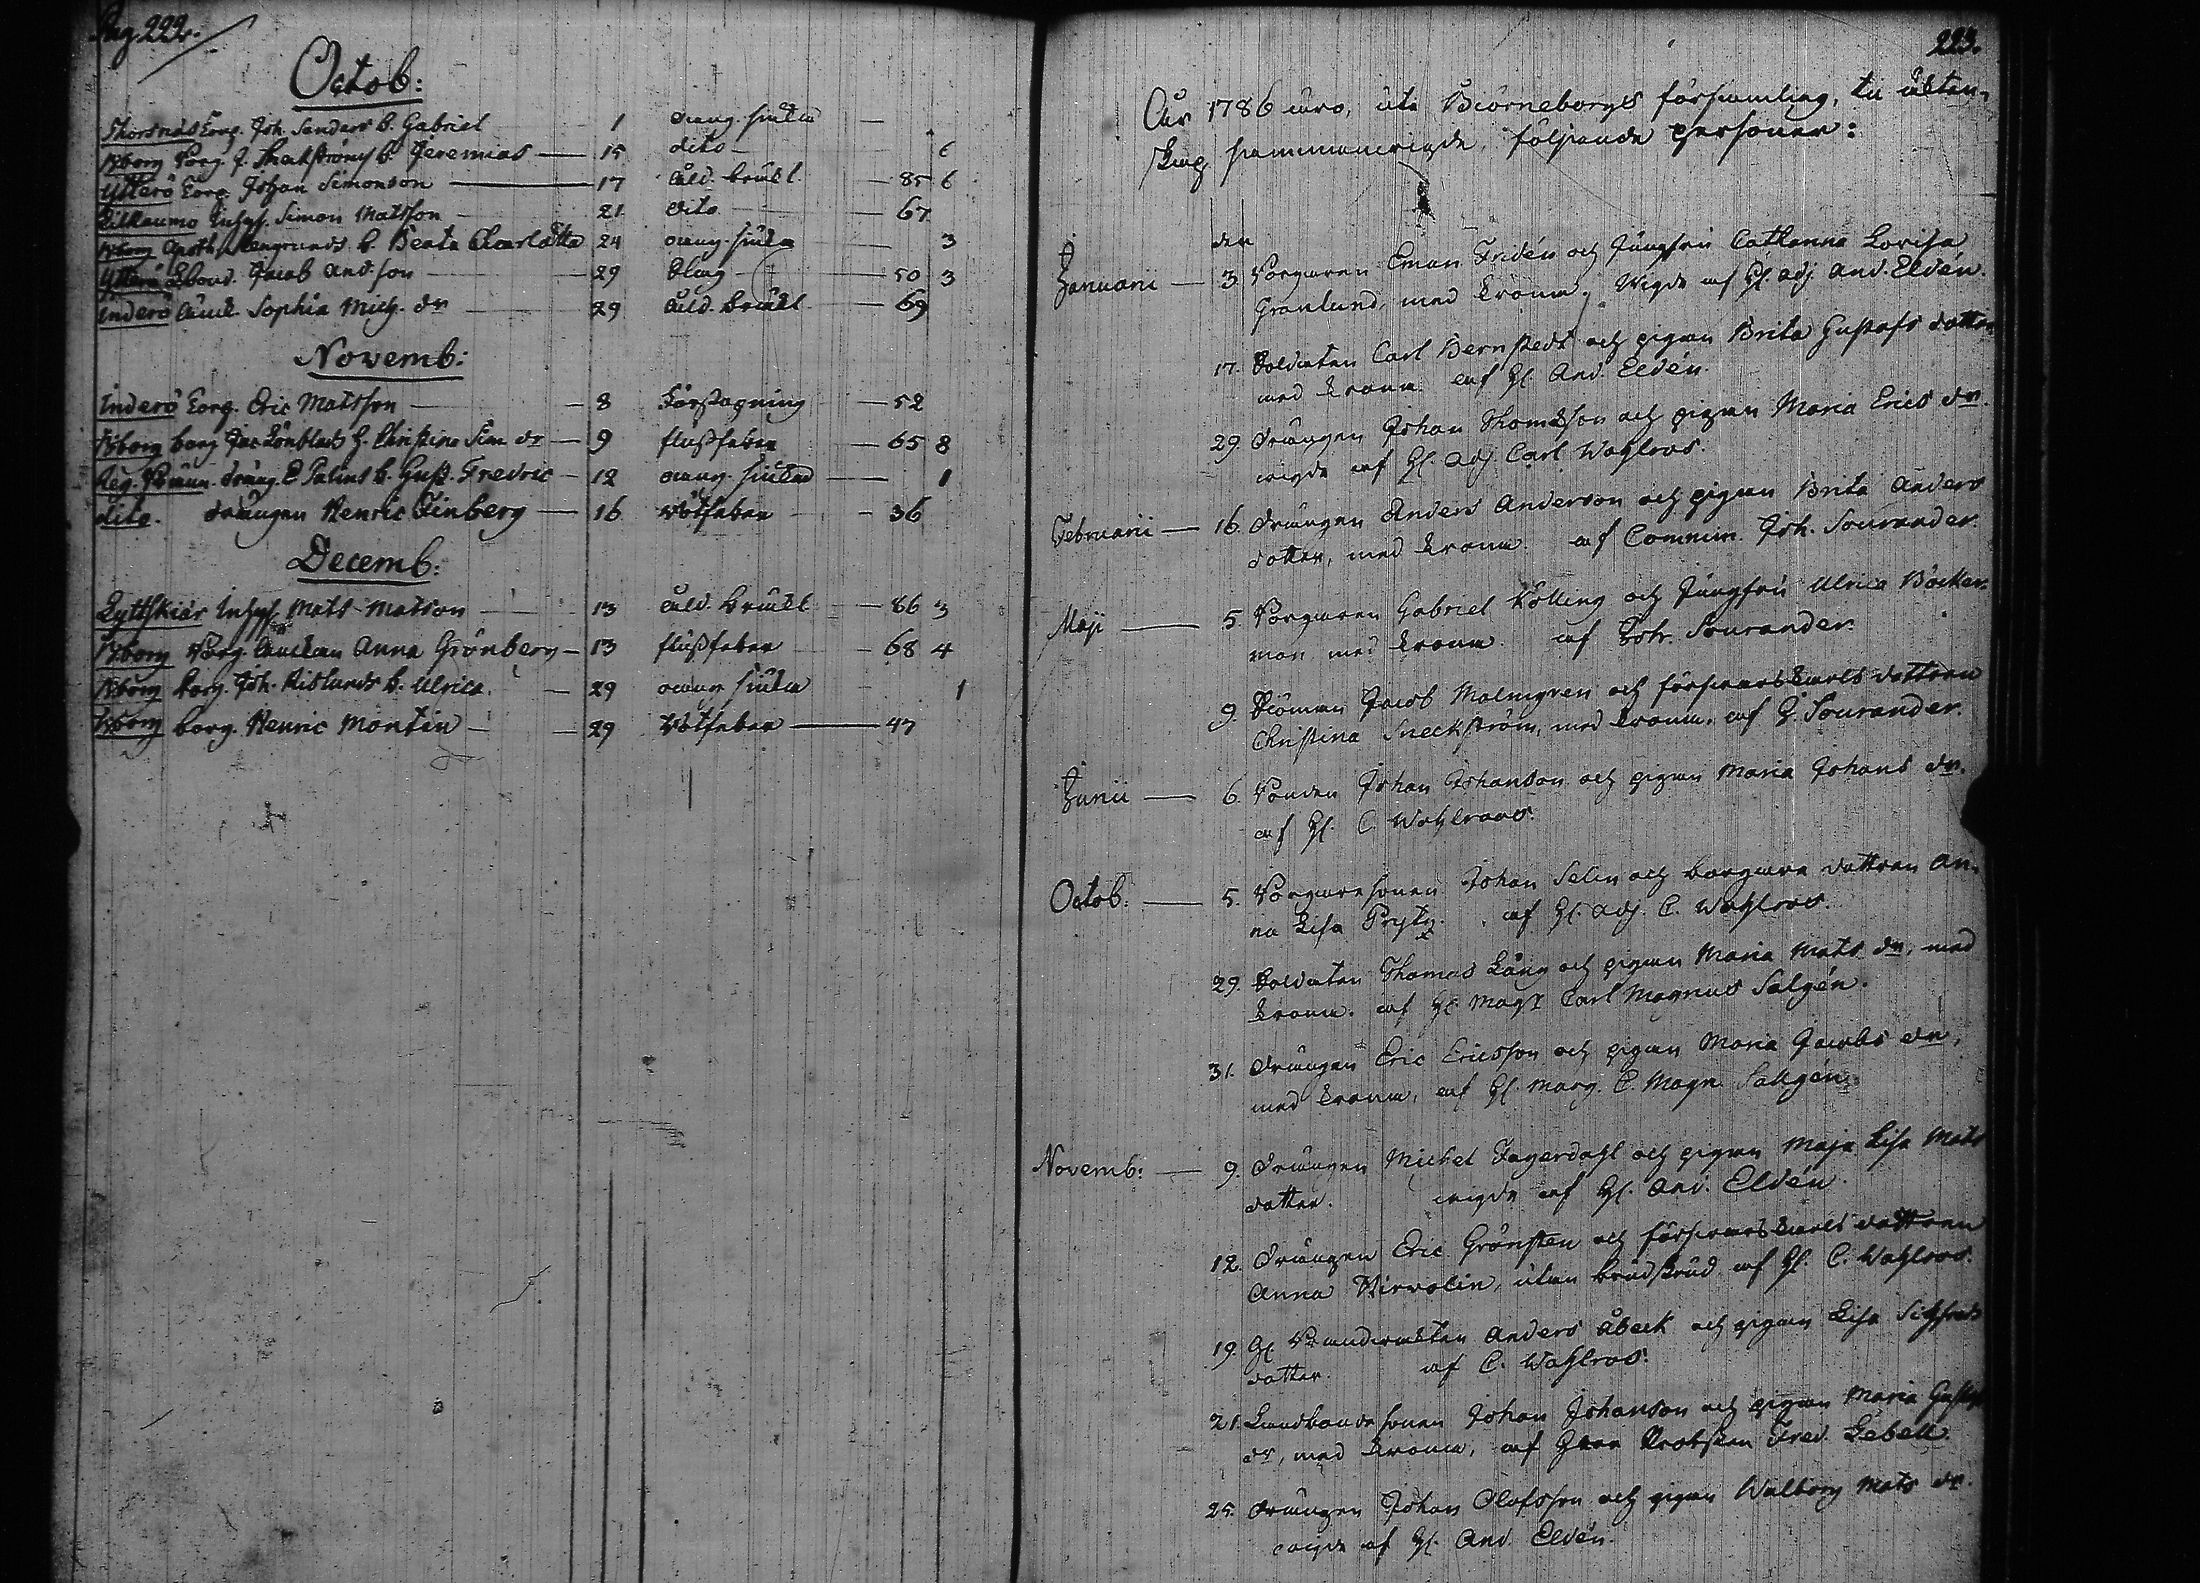 Pag 222.
Octob:
Thorsnäs Torp. Joh. Sanders b. Gabriel 1 oang. siuka
Bborg Borg. J. b. Jeremias 15 dito 6
Ytterö Torp. Johan Simonson 17 åld. bräckl. 85 6
Inhys. Simon Matsson 21 dito 67
Bborg Apoth. b. Beata Charlotta 24 oang. siuka 3
Ytterö Jacob And.son 29 50 3
Inderö Änck. Sophia Mich. dr 29 åld. bräckl. 69
Novemb:
Inderö Torp. Eric Matsson 8 52
Bborg borg. Jac Lönblads h. Christina Sim. dr 9 flussfeber 65 8
dräng. E Palins b. Gust. Fredric 12 oang. siukd. 1
dito. drängen Henric Finberg 16 rötfeber 36
Decemb:
Lyttskiär Inhys. Mats Matson 13 åld. bräckl 86 3
Bborg Borg. Änckan Anna Grönberg 13 flussfeber 68 4
Bborg borg. Joh. b. Ulrica. 29 oang. siuka 1
Bborg borg. Henric Montin 29 rötfeber 47
223.
Åhr 1786 äro, uti Biörneborgs församling, til äkten-
skap sammanvigde, följande personer:
den
Januarii 3. Borgaren Eman Fridén och Jungfru Catharina Lovisa
Granlund, med krona. Vigde af H. Adj. And. Eldén.
17. Soldaten Carl Bernstedt och pigan Brita Gustafs dotter
med krona af H. And. Eldén.
29. Drängen Johan Thomasson och pigan Maria Erics dr.
vigde af H. Adj Carl Wahlroos.
Februarii 16. Drängen Anders Anderson och pigan Brita Anders
dotter, med krona. af Commin. Joh. Sourander.
Maji 5. Borgaren Gabriel Kölling och Jungfru Ulrica Böcker-
man med krona. af Sourander.
9. Siöman Jacob Malmgren och försvarskarls dottren
Christina Sneckström, med krona. af H. Sourander.
Junii 6. Bonden Johan Johanson och pigan Maria Johans dr.
af H. C. Wahlroos.
Octob. 5. Borgaresonen Johan Selin och borgare dottren An-
na Lisa Prytz. af H. Adj. C. Wahlroos.
29. Soldaten Thomas Lång och pigan Maria Mats dr, med
krona. af H. Mag. Carl Magnus Salgén.
31. Drängen Eric Ericsson och pigan Maria Jacobs dr,
med krona, af H. Mag. C. Magn. Salgén.
Novemb: 9. Drängen Michel Fagerdahl och pigan Maja Lisa Mats
dotter. vigde af H. And. Eldén.
12. Drängen Eric Grönsten och försvarskarls dottren
Anna Hirvolin, utan brudskrud af H. C. Wahlroos.
19. Anders Åbeck och pigan Lisa Sigfreds
dotter. af C. Wahlroos.
21. Landbonde sonen Johan Johanson och pigan Maria Gustafs
dr, med krona, af Herr Probsten Fred. Lebell
25. Drängen Johan Olofsson och pigan Walborg Mats dr.
vigde af H. And. Eldén.